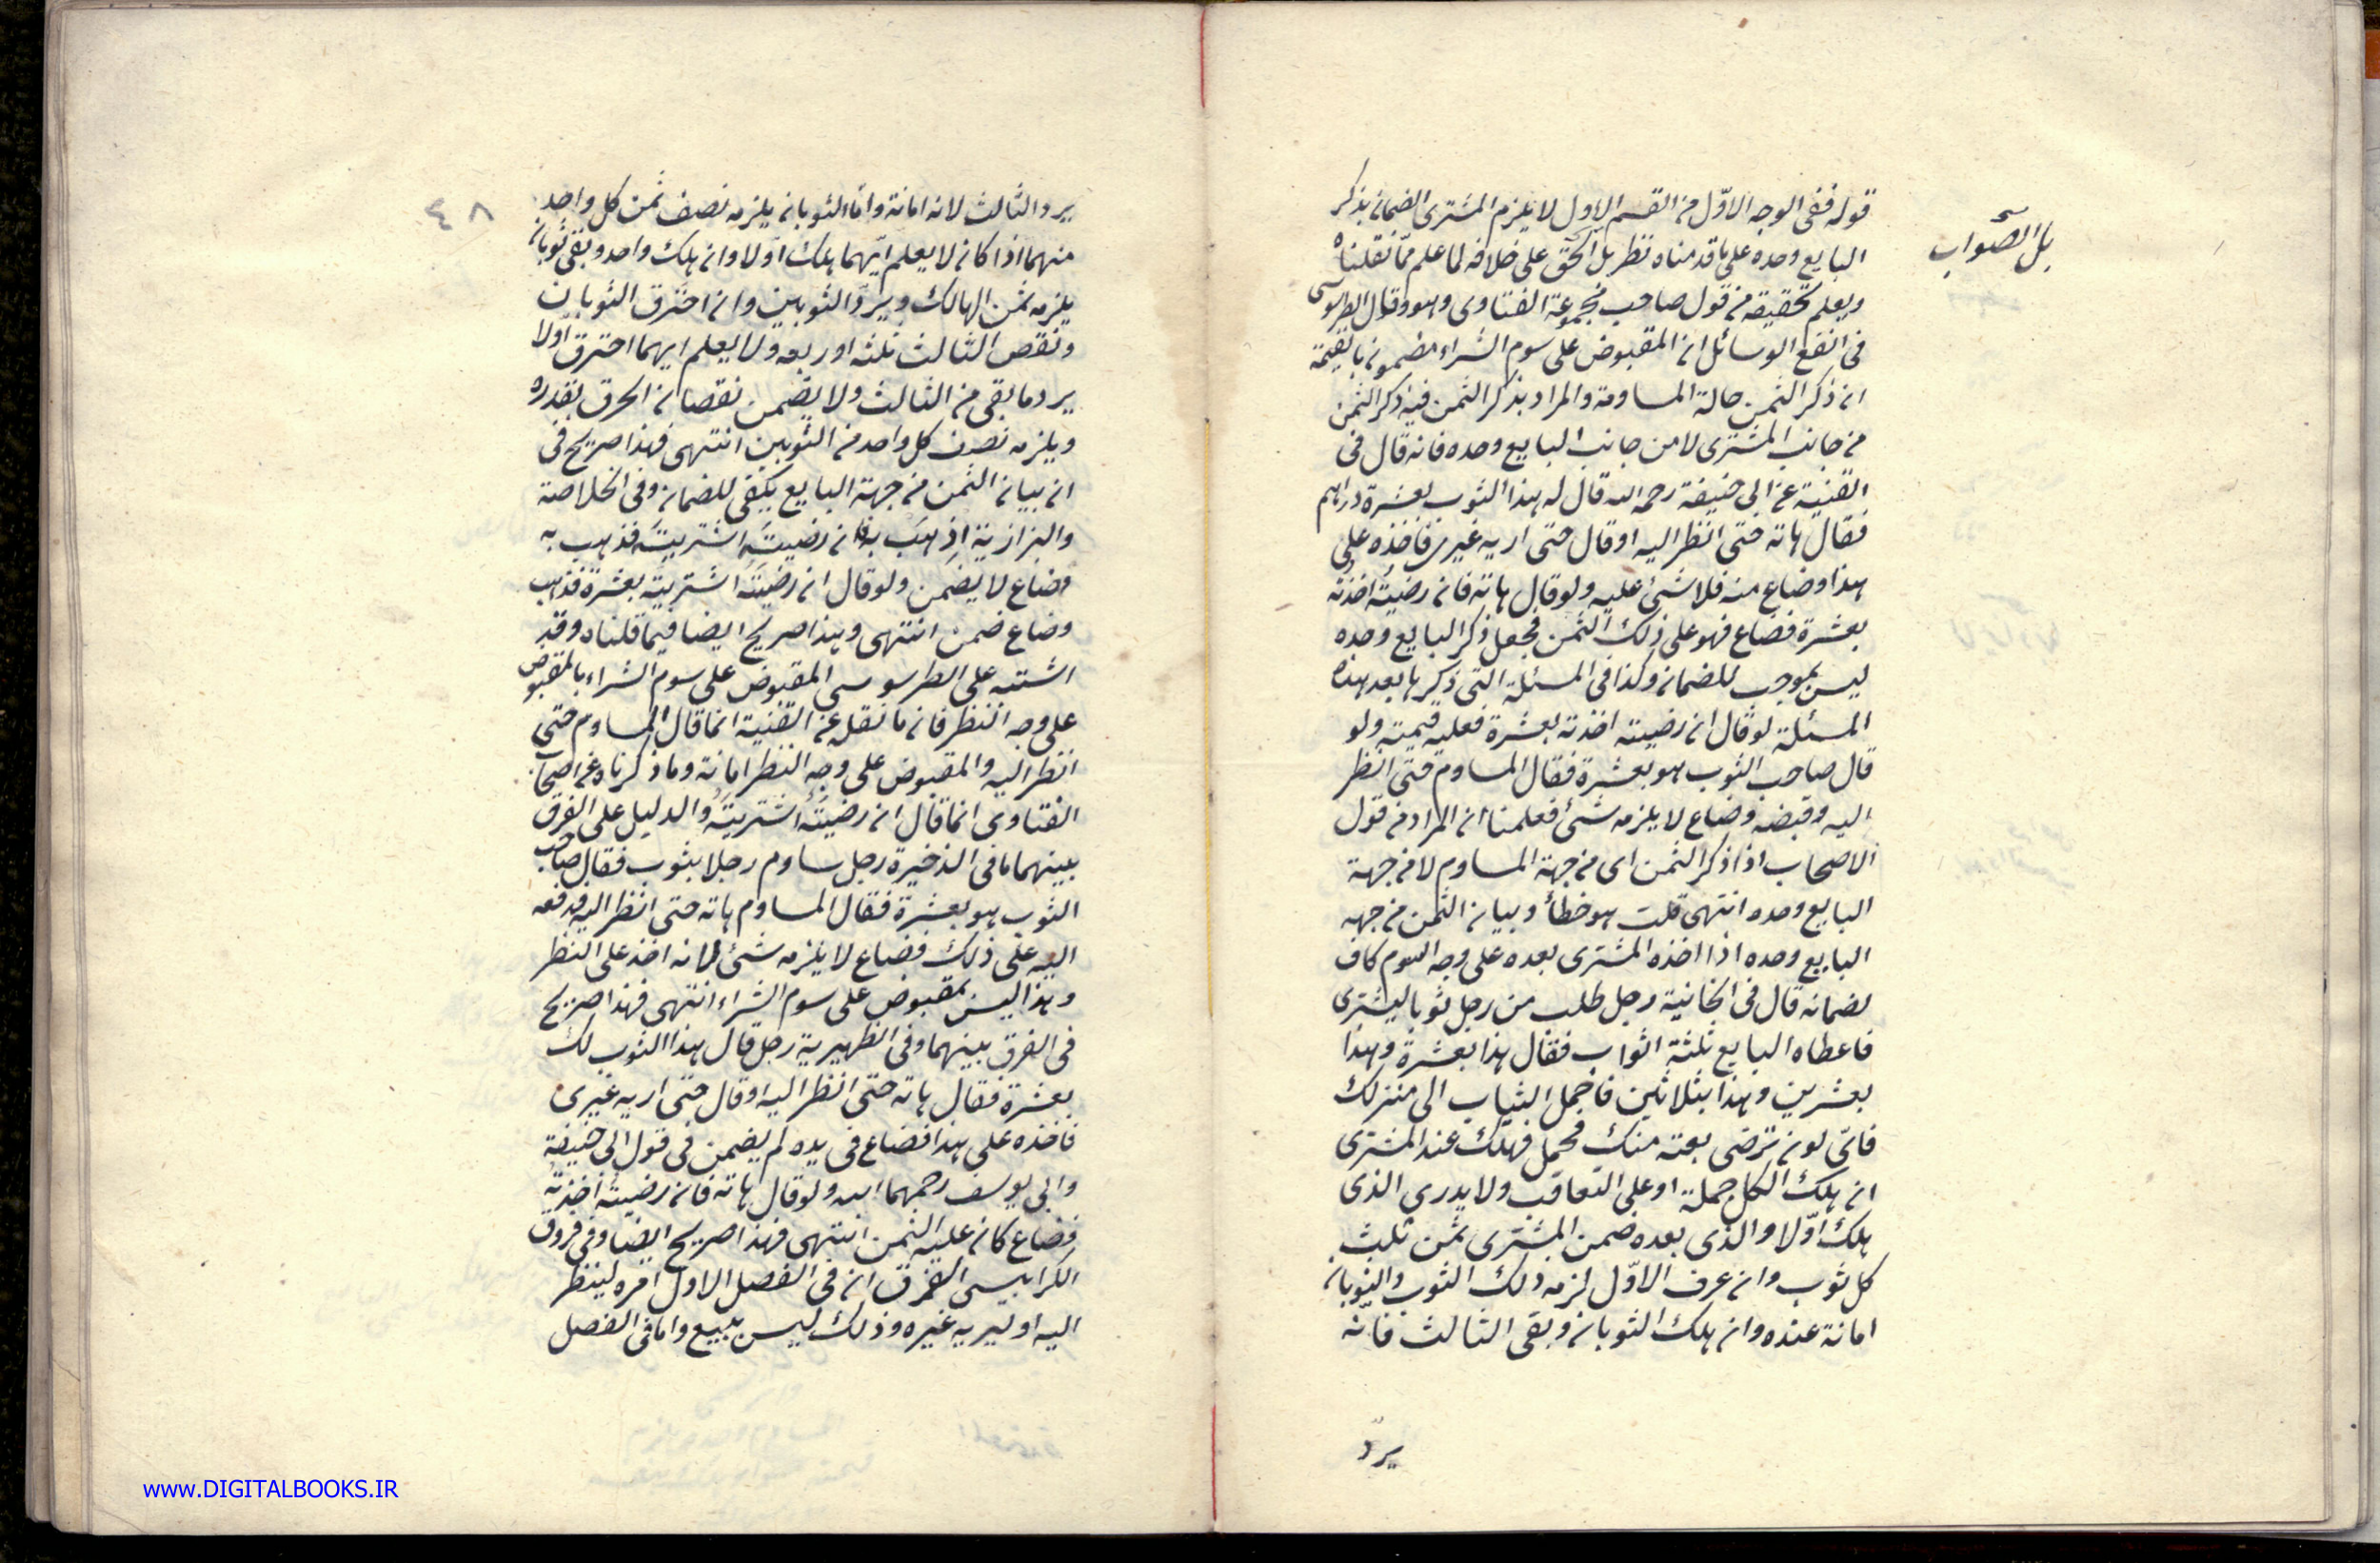 قوله ففى الوجه الاوّل من القسم الاول لا يلزم المشترى الضمان بذكر
البايع وحده على ما قدمناه نظر بل الحق على خلافه لما علم ممّا نقلناه
ويعلم تحقيقه من قول صاحب مجموعة الفتاوى وهو وقال الطرسوسى
فى انفع الوسائل ان المقبوض على سوم الشراء مضمون بالقيمة
ان ذكر الثمن حالة المساومة والمراد بذكر الثمن فيه ذكر الثمن
من جانب المشترى لا من جانب البايع وحده فانه قال فى
القنية عن ابى حنيفة رحمه الله قال له هذا الثوب بعشرة دراهم
فقال هاته حتى انظر اليه او قال حتى اريه غيرى فاخذه على
هذا وضاع منه فلا شئ عليه ولو قال هاته فان رضيتُه اخذتُه
بعشرة فضاع فهو على ذلك الثمن فجعل ذكر البايع وحده
ليس بموجب للضمان وكذا فى المسئلة التى ذكرها بعد هذه
المسئلة لو قال ان رضيته اخذته بعشرة فعليه قيمته ولو
قال صاحب الثوب هو بعشرة فقال المساوم حتى انظر
اليه وقبضه وضاع لا يلزمه شئ فعلمنا ان المراد من قول
الاصحاب اذا ذكر الثمن اى من جهة المساوم لا من جهة
البايع وحده انتهى قلت هو خطأ وبيان الثمن من جهه
البايع وحده اذا اخذه المشترى بعده على وجه السوم كاف
لضمانه قال فى الخانية رجل طلب من رجل ثوبا ليشترى
فاعطاه البايع ثلثة اثواب فقال هذا بعشرة وهذا
بعشرين وهذا بثلاثين فاحمل الثياب الى منزلك
فاىّ ثوب ترضى بعته منك فحمل فهلك عند المشترى
ان هلك الكل جملة او على التعاقب ولا يدرى الذى
هلك اوّلا والذى بعده ضمن المشترى ثمن ثلث
كل ثوب وان عرف الاوّل لزمه ذلك الثوب والثوبان
امانة عنده وان هلك الثوبان وبقى الثالث فانه
يردّ
بل الصّواب
صح
٤٨
يرد الثالث لانه امانة واما الثوبان يلزمه نصف ثمن كل واحد
منهما اذا كان لا يعلم ايّهما هلك اوّلا وان هلك واحد وبقى ثوبان
يلزمه ثمن الهالك ويردّ الثوبين وان احترق الثوبان
ونقص الثالث ثلثه او ربعه ولا يعلم ايهما احترق اوّلا
يرد ما بقى من الثالث ولا يضمن نقصان الحرق بقدره
ويلزمه نصف كل واحد من الثوبين انتهى فهذا صريح فى
ان بيان الثمن من جهة البايع يكفى للضمان وفى الخلاصة
والبزازية اذهب به ان رضيتَه اشتريتَه فذهب به
وضاع لا يضمن ولو قال ان رضيتَه اشتريتَه بعشرة فذهب
وضاع ضمن انتهى وهذا صريح ايضا فيما قلناه وقد
اشتبه على الطرسوسى المقبوض على سوم الشراء بالمقبوض
على وجه النظر فان ما نقله عن القنية انما قال المساوم حتى
انظر اليه والمقبوض على وجه النظر امانة وما ذكرناه عن اصحاب
الفتاوى انما قال ان رضيتُه اشتريتُه والدليل على الفرق
بينهما ما فى الذخيرة رجل ساوم رجلا بثوب فقال صاحب
الثوب هو بعشرة فقال المساوم هاته حتى انظر اليه فدفعه
اليه على ذلك فضاع لا يلزمه شئ لانه اخذ على النظر
وهذا ليس بمقبوض على سوم الشراء انتهى فهذا صريح
فى الفرق بينهما وفى الظهيرية رجل قال هذا الثوب لك
بعشرة فقال هاته حتى انظر اليه او قال حتى اريه غيرى
فاخذه على هذا فضاع فى يده لم يضمن فى قول ابى حنيفة
وابى يوسف رحمهما الله ولو قال هاته فان رضيتُه اخذتُه
فضاع كان عليه الثمن انتهى فهذا صريح ايضا وفى فروق
الكرابيسى الفرق ان فى الفصل الاول امره لينظر
اليه او ليريه غيره وذلك ليس ببيع واما فى الفصل
www.DIGITALBOOKS.IR